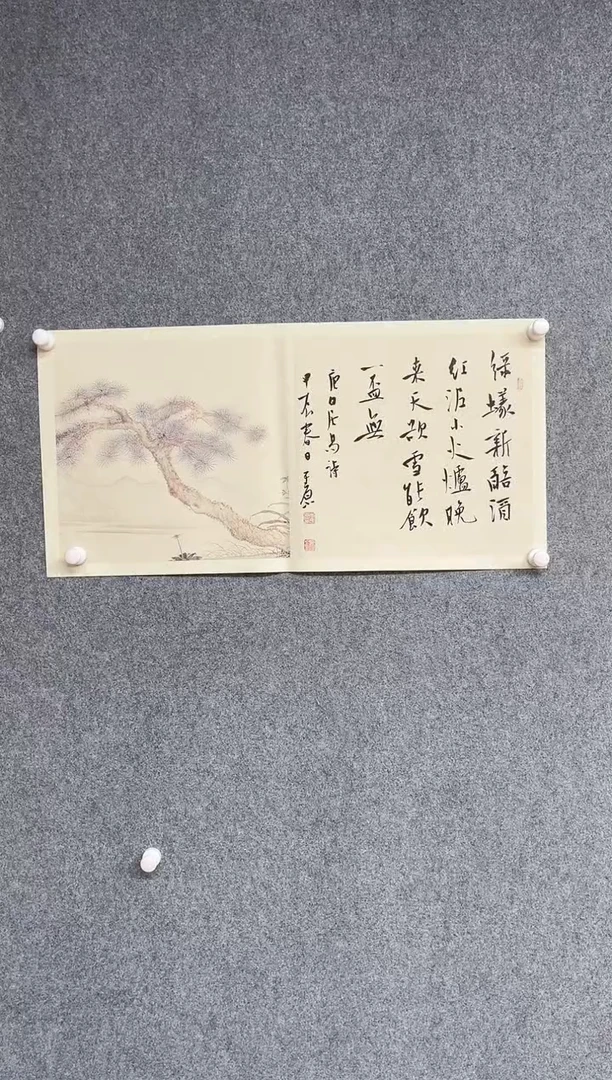 綠蟻新醅酒
红泥小火爐晚
来天欲雪能飲
一盃無
唐白居易诗
甲辰春日